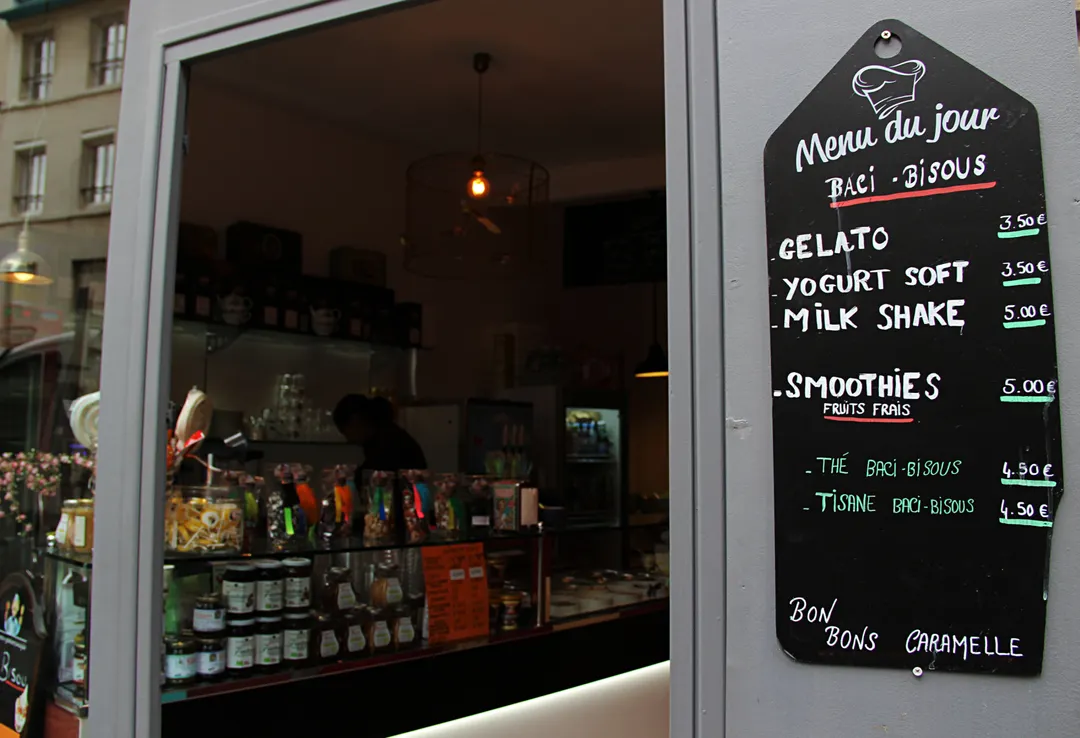 Menu du jour
BACI - BISOUS
- GELATO 3.50 €
- YOGURT SOFT 3.50 €
- MILK SHAKE 5.00 €
- SMOOTHIES 5.00 €
FRUITS FRAIS
- THÉ BACI-BISOUS 4.50 €
- TISANE BACI-BISOUS 4.50 €
BON
BONS CARAMELLE